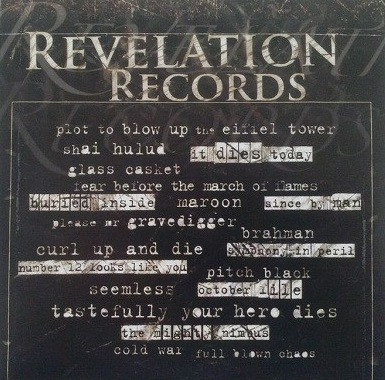 REVELATION
RECORDS
plot to blow up the eiffel tower
shai hulud it dies today
glass casket
fear before the march of flames
buried inside maroon since by man
please mr gravedigger
brahman
curl up and die symphony in peril
number 12 looks like you pitch black
seemless october file
tastefully your hero dies
the mighty nimbus
cold war full blown chaos